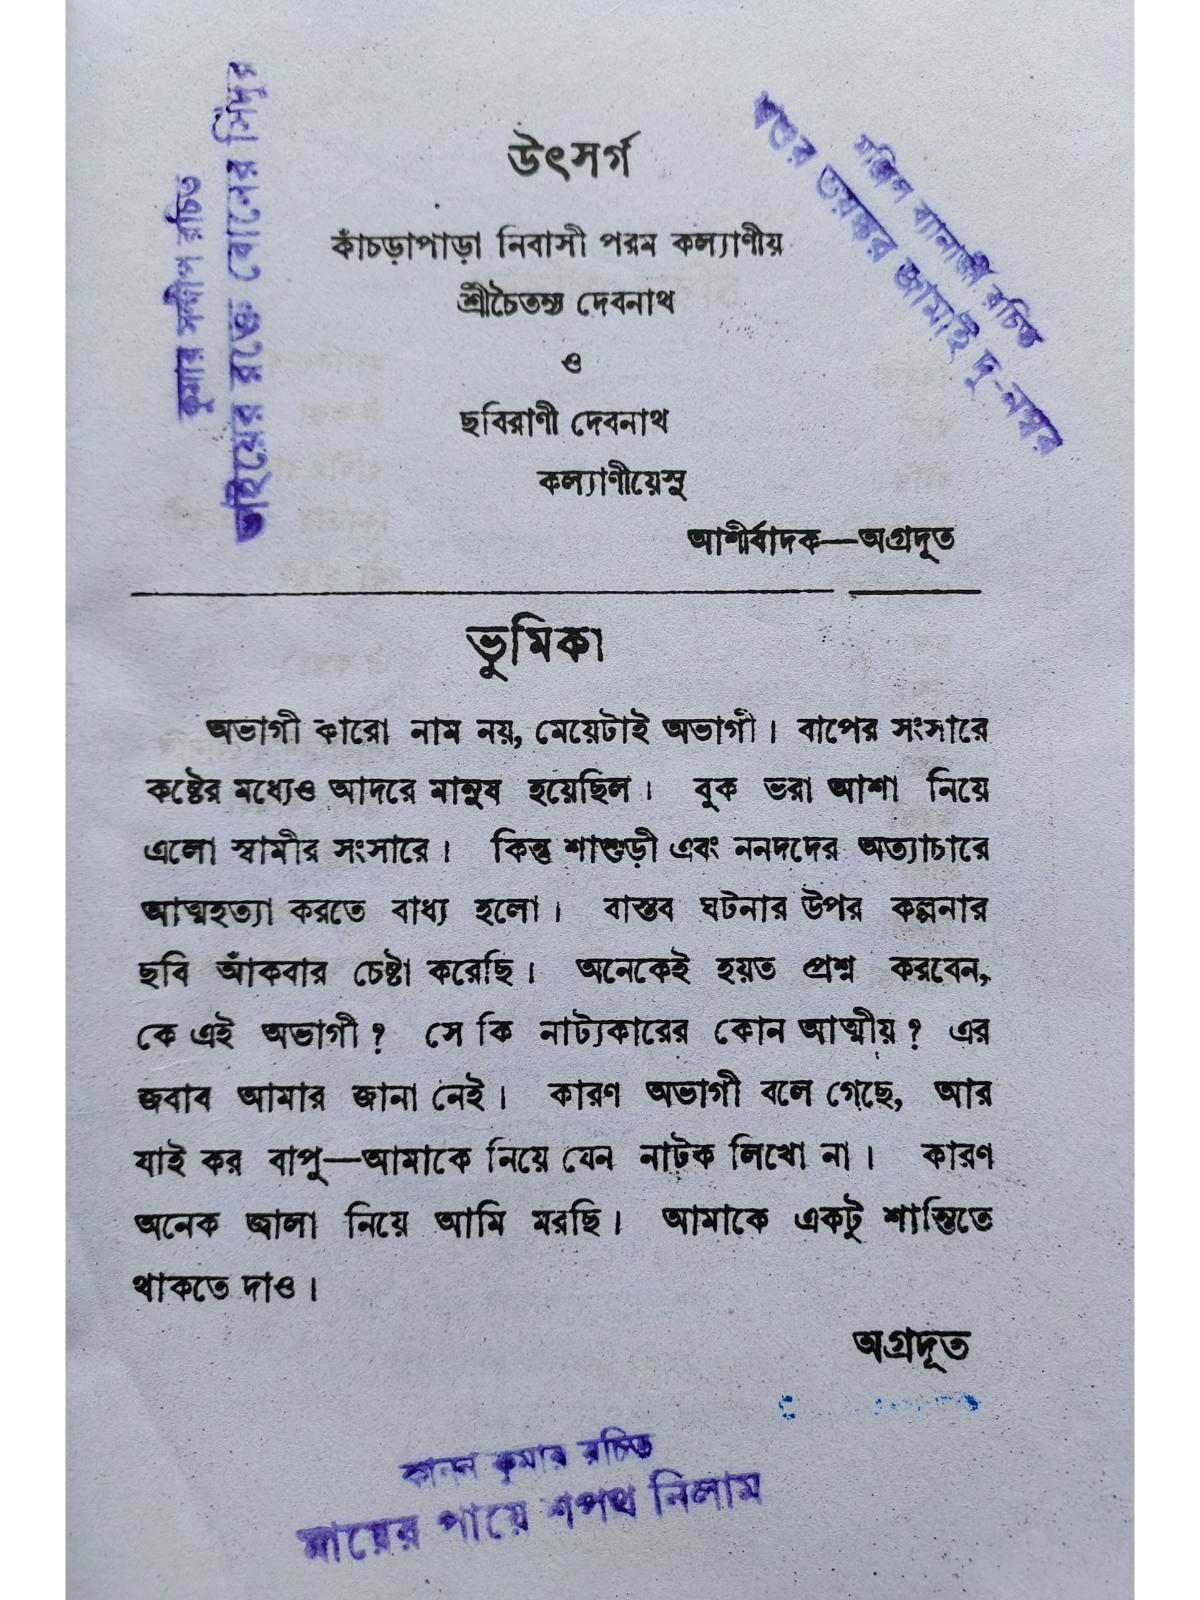 উৎসর্গ
কাঁচড়াপাড়া নিবাসী পরম কল্যাণীয়
শ্রীচৈতন্য দেবনাথ
ও
ছবিরাণী দেবনাথ
কল্যাণীয়েসু
আশীর্বাদক—অগ্রদূত
কুমার সন্দীপ রচিত
ভাইয়ের রক্তে বোনের সিঁদুর
ব্যানার্জী রচিত
শ্বশুর ভয়ঙ্কর জামাই দু-নম্বর
ভুমিকা
অভাগী কারো নাম নয়, মেয়েটাই অভাগী। বাপের সংসারে
কষ্টের মধ্যেও আদরে মানুষ হয়েছিল। বুক ভরা আশা নিয়ে
এলো স্বামীর সংসারে। কিন্তু শাশুড়ী এবং ননদদের অত্যাচারে
আত্মহত্যা করতে বাধ্য হলো। বাস্তব ঘটনার উপর কল্পনার
ছবি আঁকবার চেষ্টা করেছি। অনেকেই হয়ত প্রশ্ন করবেন,
কে এই অভাগী? সে কি নাট্যকারের কোন আত্মীয়? এর
জবাব আমার জানা নেই। কারণ অভাগী বলে গেছে, আর
যাই কর বাপু—আমাকে নিয়ে যেন নাটক লিখো না। কারণ
অনেক জ্বালা নিয়ে আমি মরছি। আমাকে একটু শান্তিতে
থাকতে দাও।
অগ্রদূত
কানন কুমার রচিত
মায়ের পায়ে শপথ নিলাম